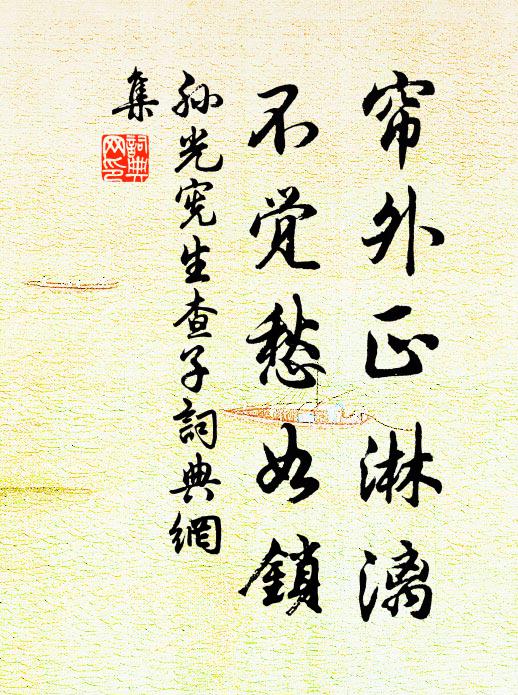 帘外正淋漓
不觉愁如鎖
孙光宪生查子詞典網
集
詞典网印